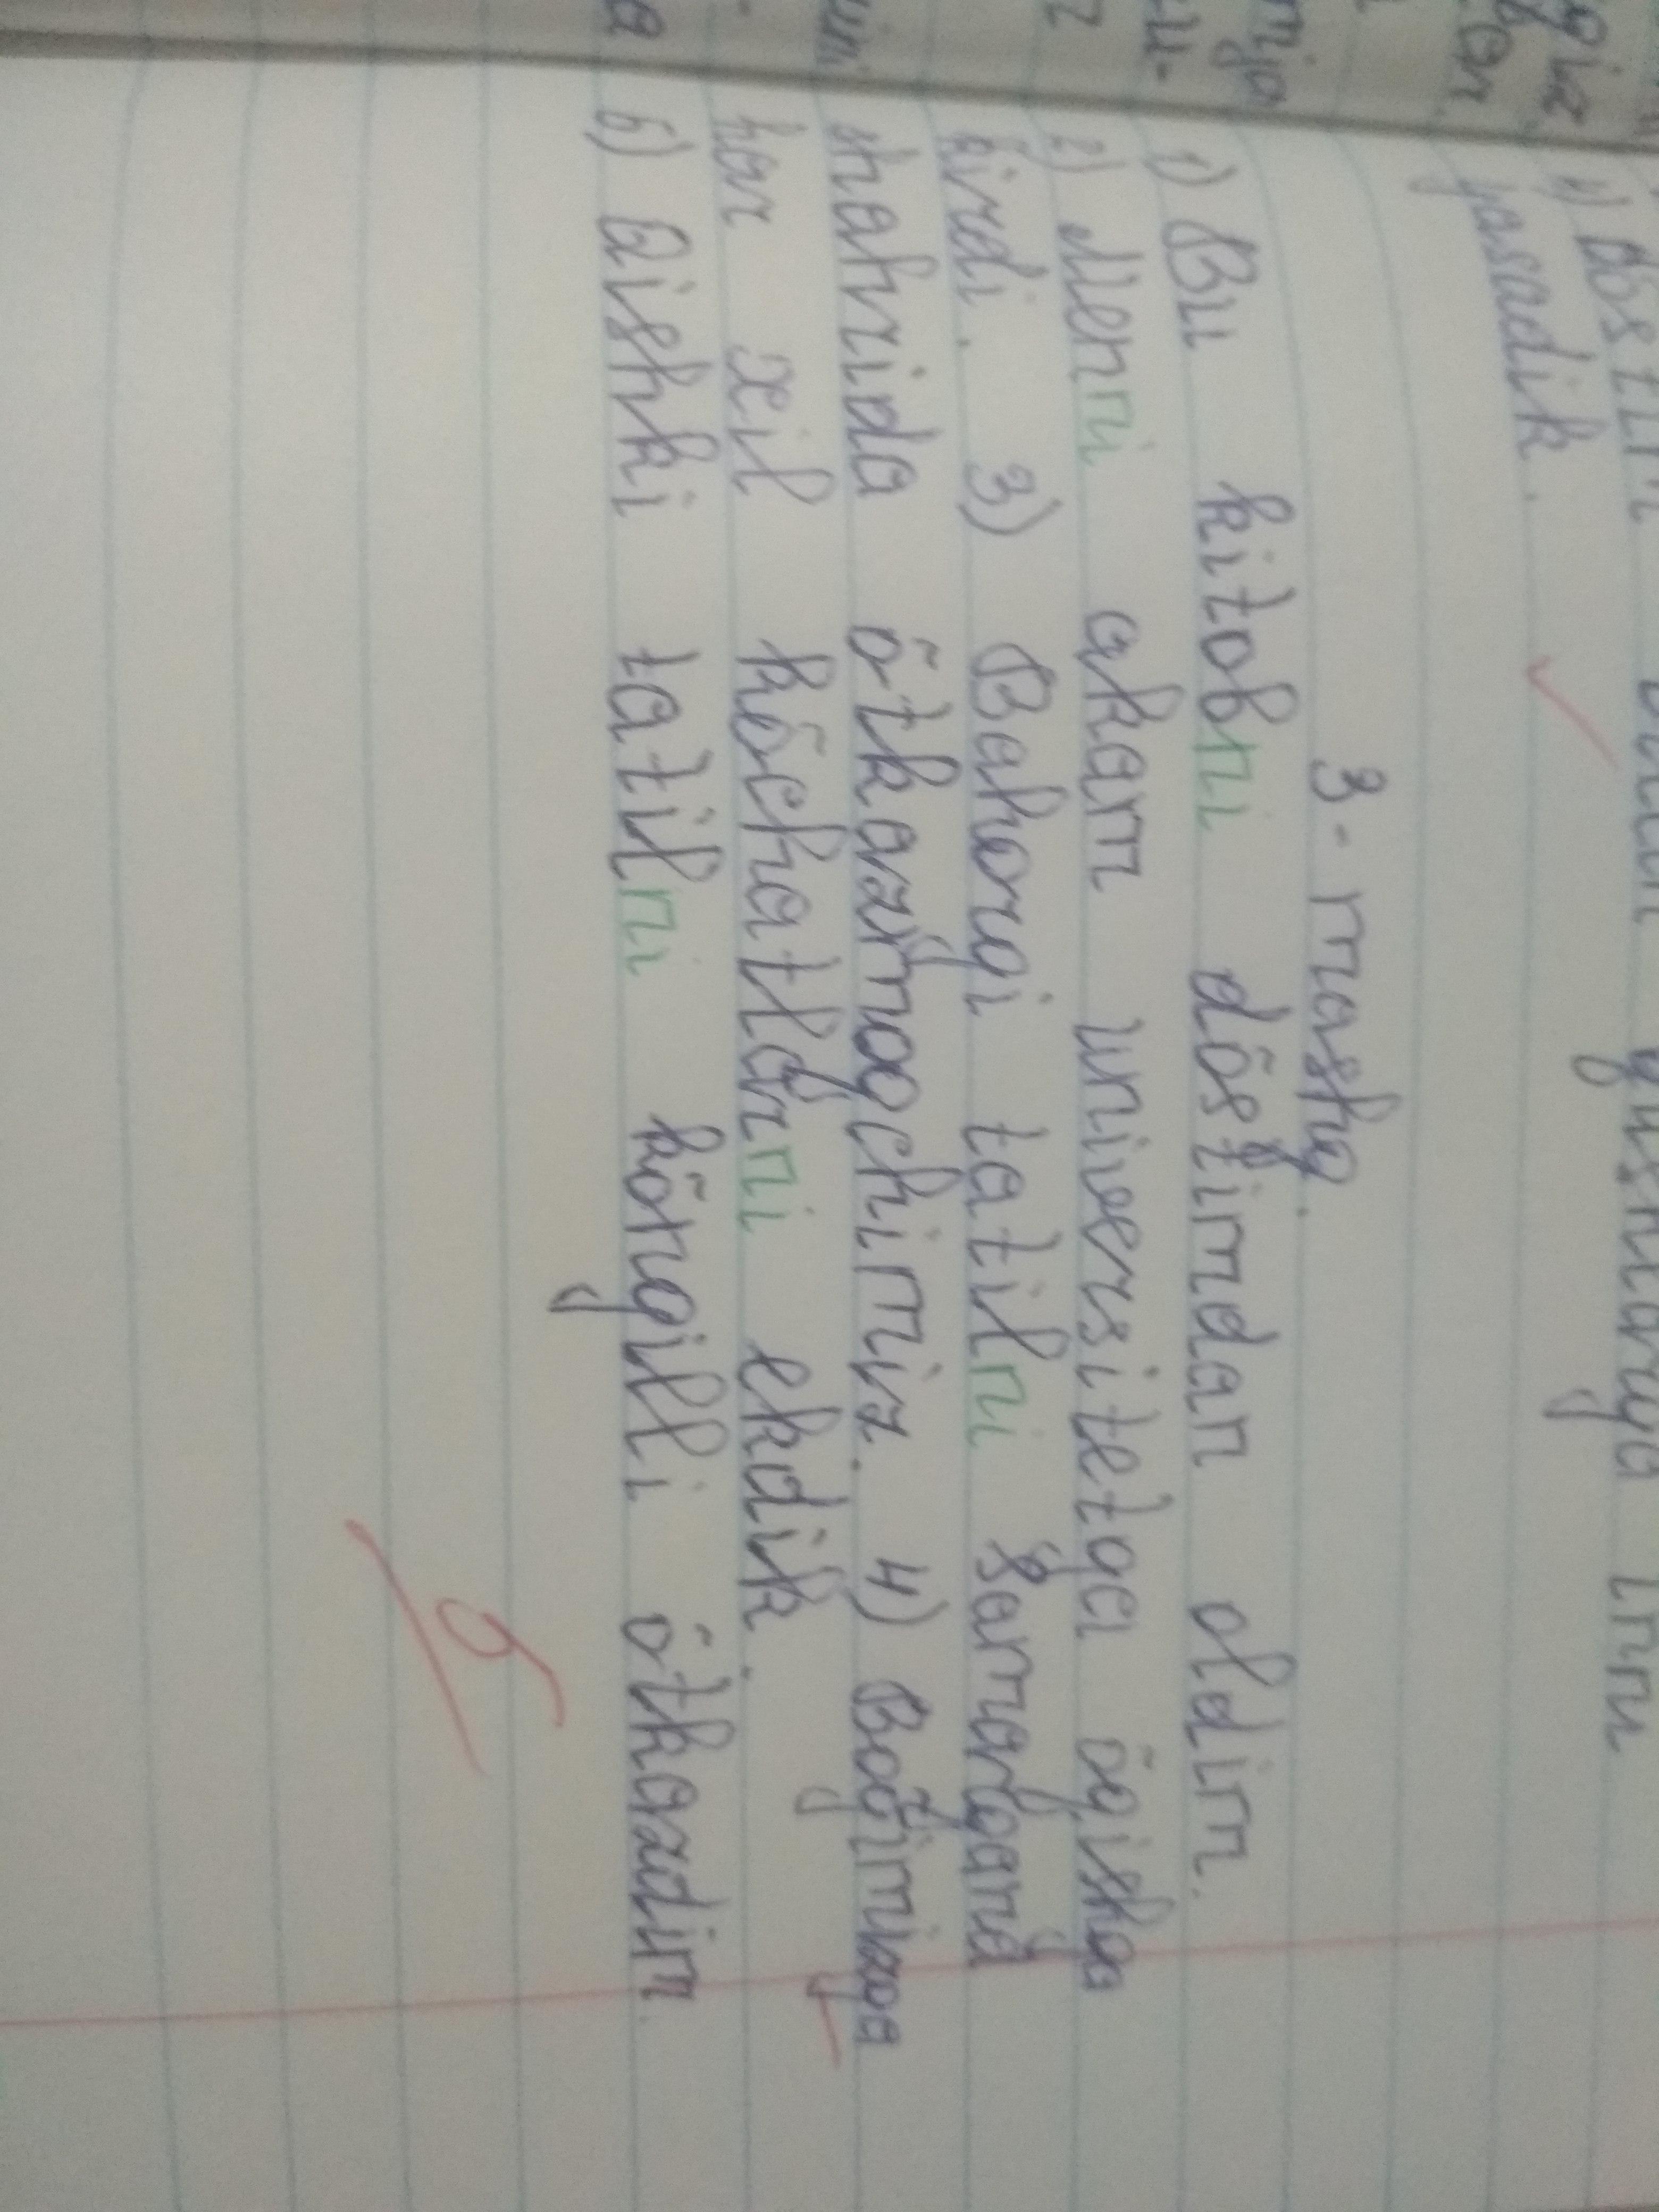 4) Dòstim bilan
yasadik.
3-mashq.
1) Bu kitobni dõstimdan oldim.
2) Meni akam universitetga õqishga
kirdi. 3) Bahorgi tatilni Samarqand
shahrida õtkazmoqchimiz. 4) Bog'imizga
har xil kõchatlarni ekdik.
5) Qishki tatilni kõngilli õtkazdim.
5